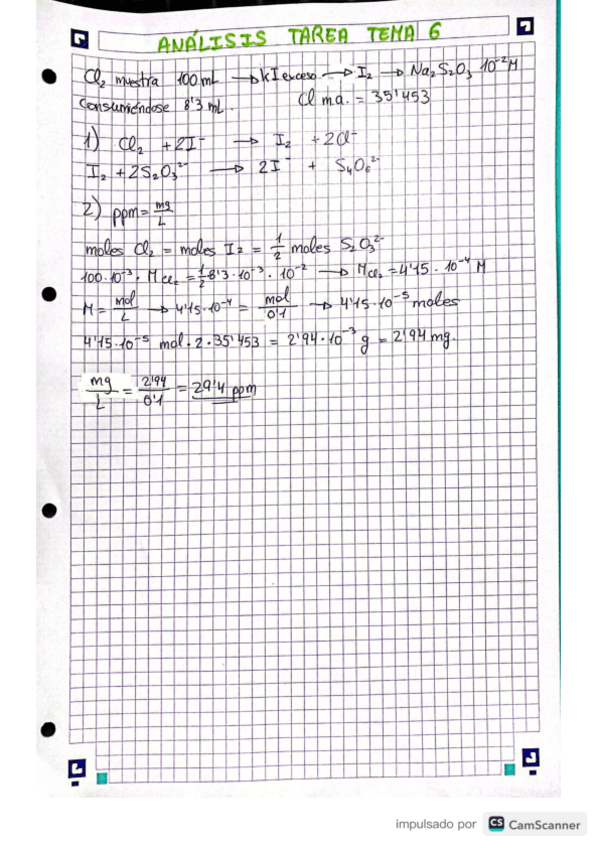 ANÁLISIS TAREA TEMA 6
Cl₂ muestra 100 mL → kI exceso → I₂ → Na₂S₂O₃ 10⁻² M
Consumiéndose 8'3 mL. Cl ma. = 35'453
1) Cl₂ + 2I⁻ → I₂ + 2Cl⁻
I₂ + 2S₂O₃²⁻ → 2I⁻ + S₄O₆²⁻
2) ppm = mg/L
moles Cl₂ = moles I₂ = 1/2 moles S₂O₃²⁻
100·10⁻³ · M Cl₂ = 1/2 8'3·10⁻³ · 10⁻² → M Cl₂ = 4'15 · 10⁻⁴ M
M = mol/L → 4'15·10⁻⁴ = mol/0'1 → 4'15·10⁻⁵ moles
4'15·10⁻⁵ mol · 2 · 35'453 = 2'94·10⁻³ g = 2'94 mg.
mg/L = 2'94/0'1 = 29'4 ppm
impulsado por CS CamScanner